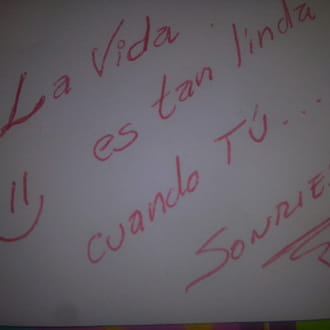 La Vida
es tan linda
cuando TÚ...
SONRIE